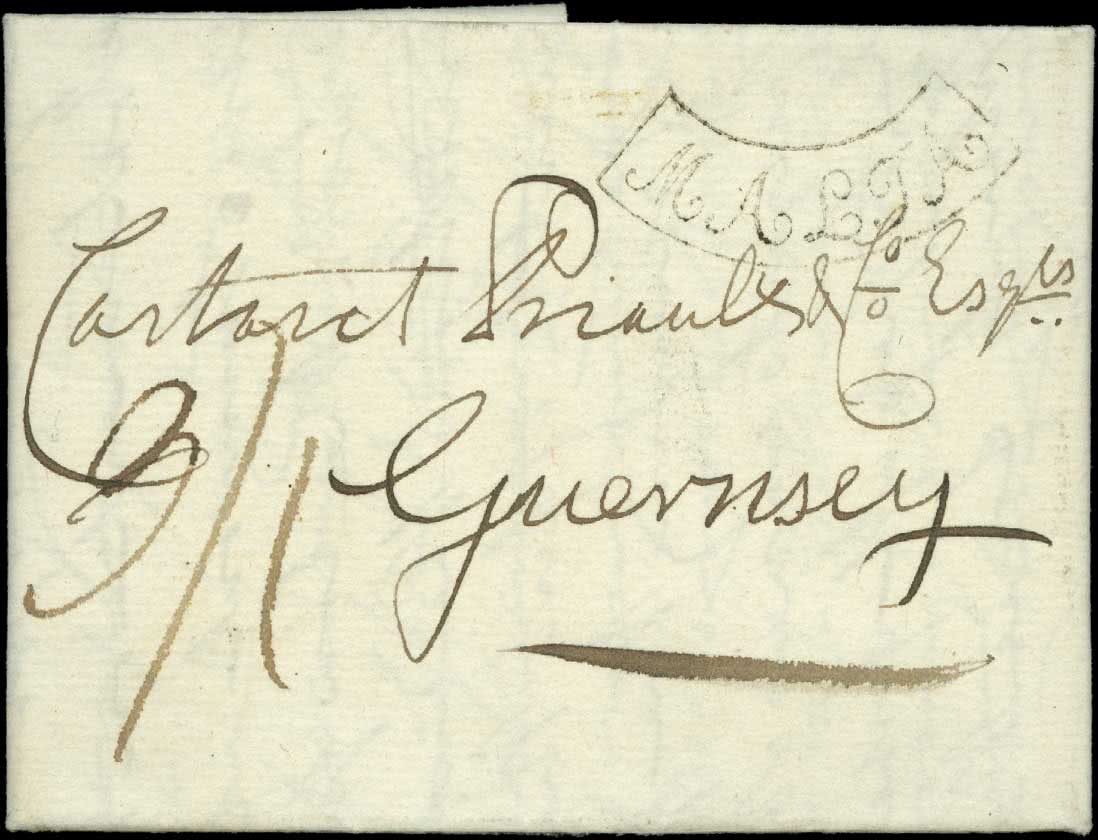 MALTA
Cartaret Priaulx & Co Esqrs
3/1 Guernsey